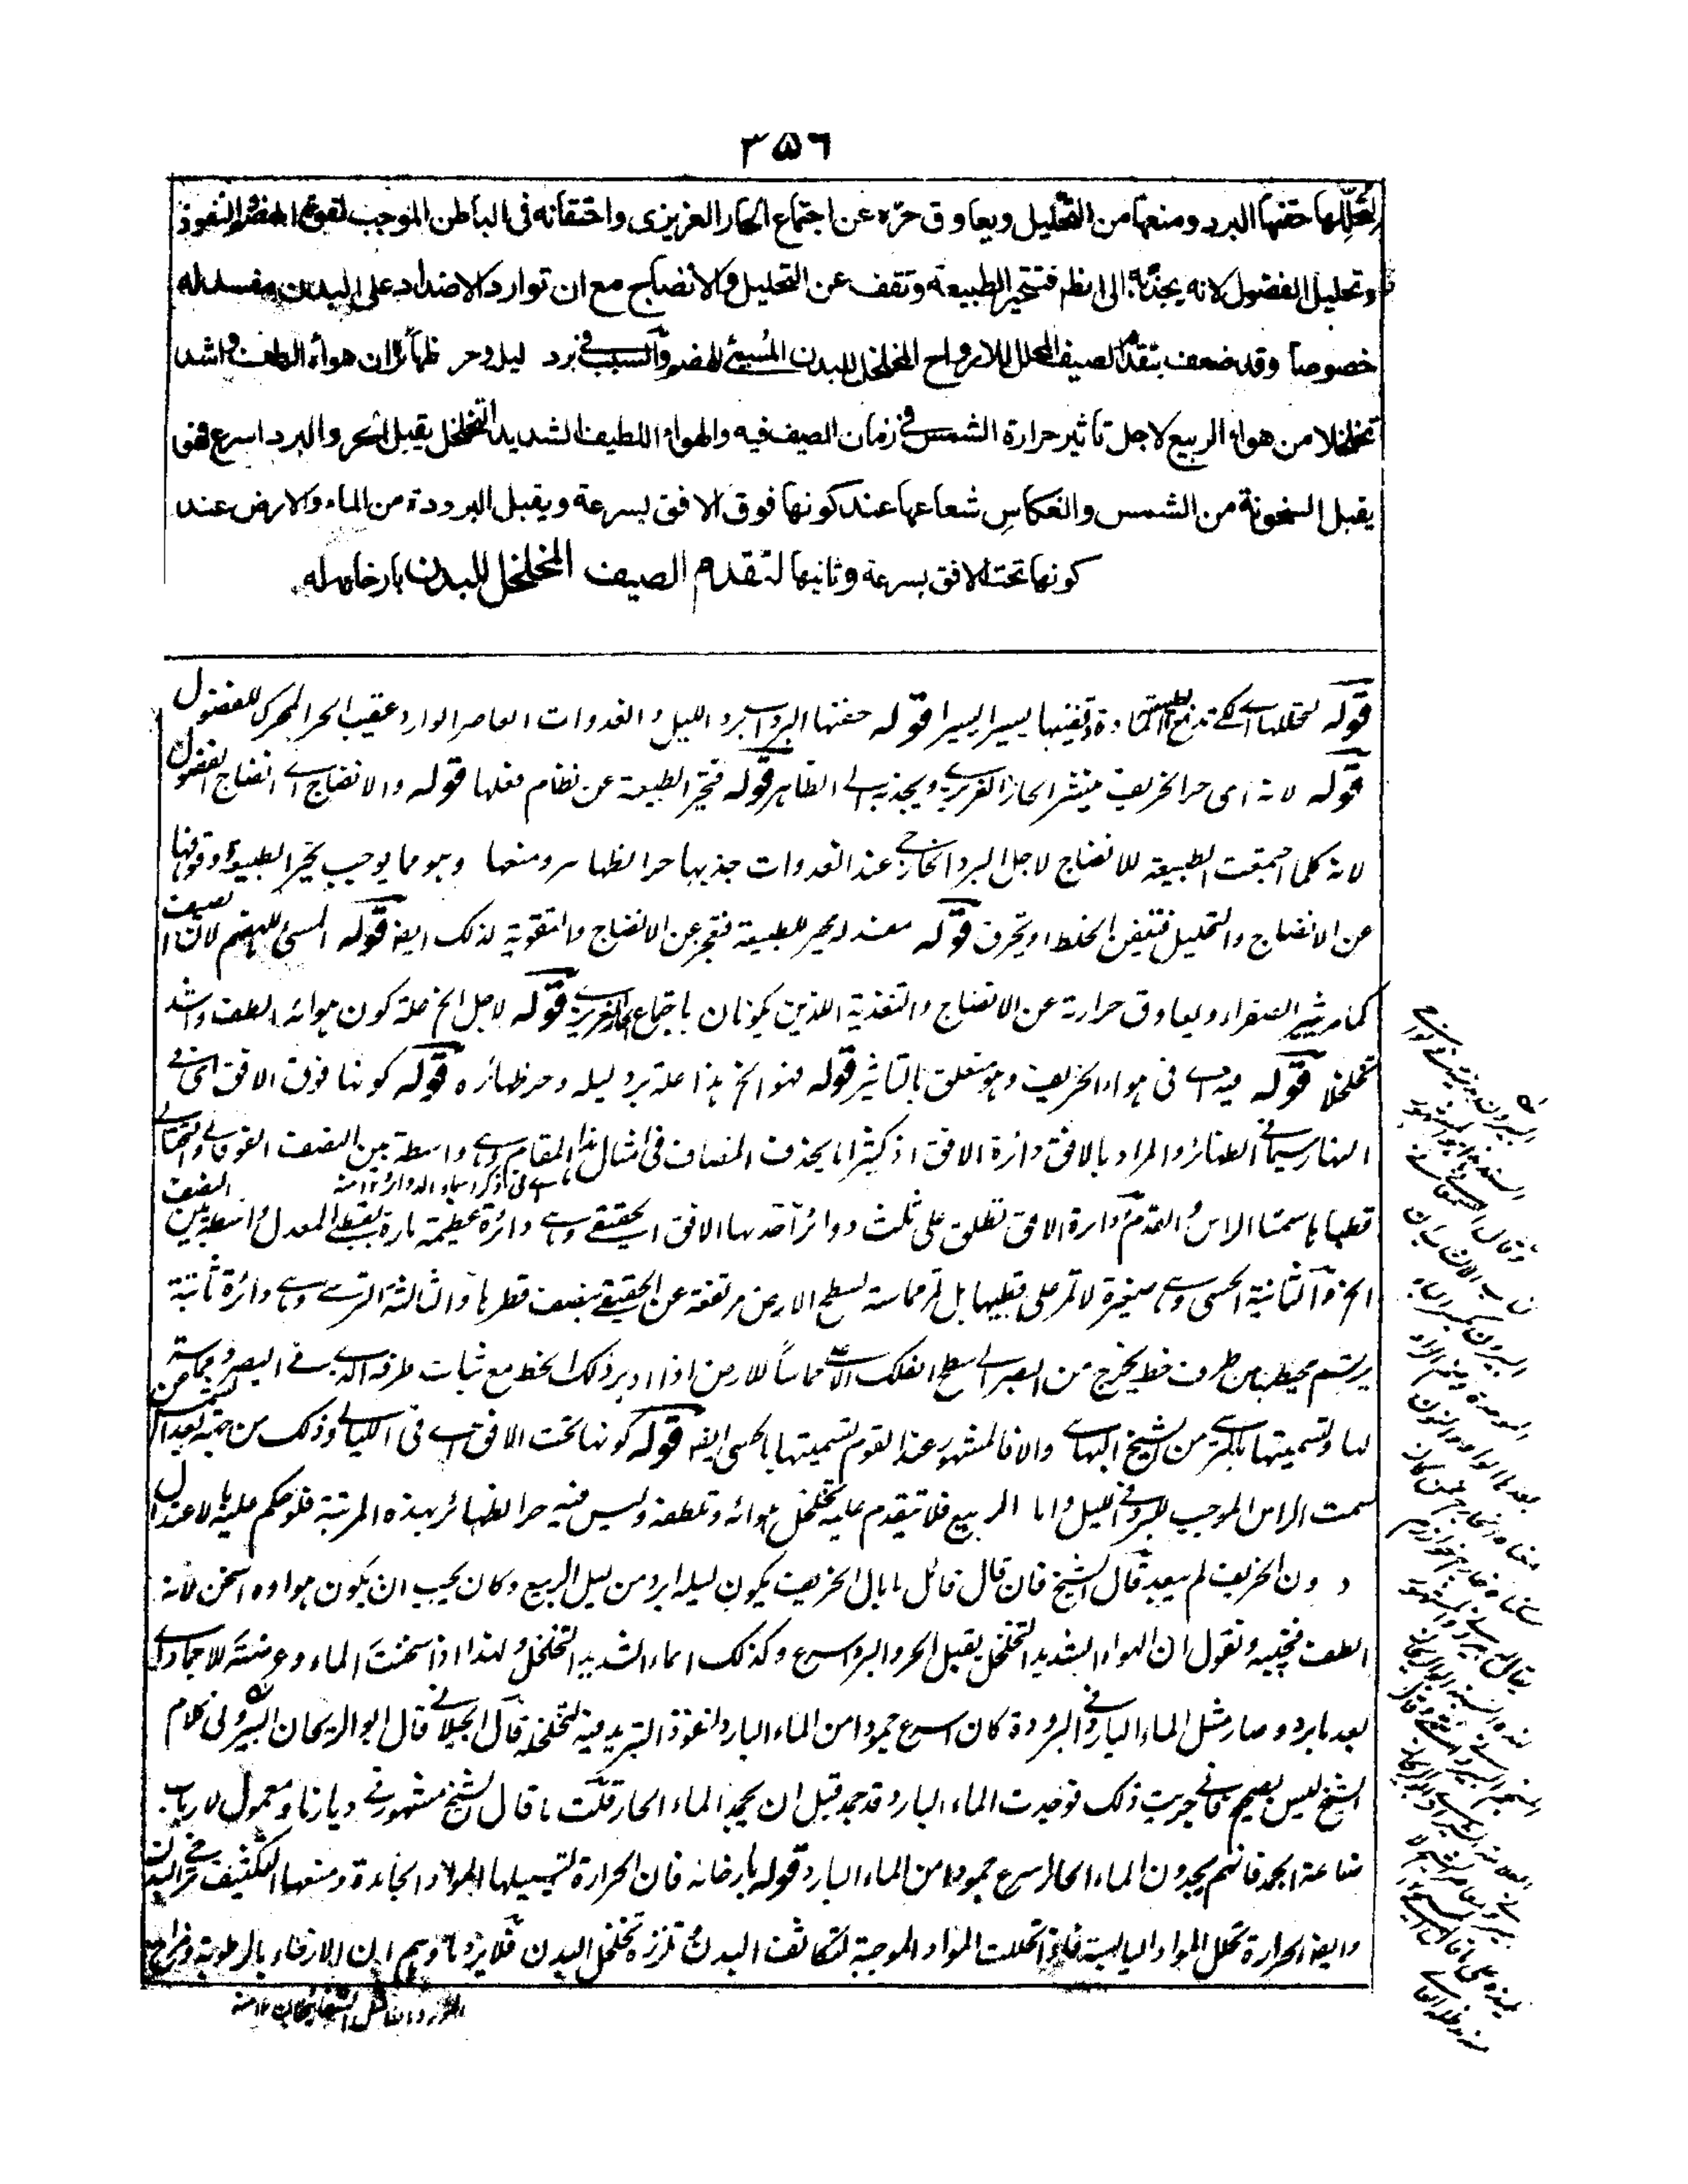 ٣٥٦
لتحللها حقنها البرد ومنعها من التحليل ويعاوق حره عن اجتماع الحار الغريزى واحتقانه فى الباطن الموجب لقوة الهضم والنفوذ
وتحليل الفضول لانه يجذبه الى الظاهر فتتحير الطبيعة وتقف عن التحليل والانضاج مع ان توارد الاضداد على البدن مفسد له
خصوصا وقد ضعف بتقدم الصيف المحلل للارواح المخلخل للبدن المسيئ للهضم والسبب فى برد ليله وحر ظهائره ان هواءه الطف واشد
تخلخلا من هواء الربيع لاجل تاثير حرارة الشمس فى زمان الصيف فيه والهواء اللطيف الشديد التخلخل يقبل الحر والبرد اسرع فهو
يقبل السخونة من الشمس وانعكاس شعاعها عند كونها فوق الافق بسرعة ويقبل البرودة من الماء والارض عند
كونها تحت الافق بسرعة وثانيها لتقدم الصيف المخلخل للبدن بارخائه له
قوله لتحللها اى لكے تدفع الطبيعة المادة وتفنيها يسيرا يسيرا قوله حقنها البرد اى برد الليل والغدوات العاصر الوارد عقيب الحر المحرك للفضول
قوله لانه اى حر الخريف ينشر الحار الغريزى ويجذبه الى الظاهر قوله فتحير الطبيعة عن نظام فعلها قوله والانضاج اى انضاج الفضول
لانه كلما اجمعت الطبيعة للانضاج لاجل البرد الخارجى عند الغدوات جذبها حر الظهائر ومنعها وهو مما يوجب تحير الطبيعة ووقوفها
عن الانضاج والتحليل فتتعفن الخلط او يحترق قوله مفسد له يحير للطبيعة فتعجز عن الانضاج والتقوية لذلك ايضا قوله المسئ للهضم لان الصيف
كما مر يثير الصفراء ويعاوق حرارته عن الانضاج والتغذية اللذين يكونان باجتماع الحار الغريزى قوله لاجل الخ علة كون هوائه الطف واشد
تخلخلا قوله فيه اى فى هواء الخريف وهو متعلق بالتاثير قوله فهو الخ هذا علة برد ليله وحر ظهائره قوله كونها فوق الافق اى فى
النهار سيما فى الظهائر والمراد بالافق دائرة الافق اذ كثيرا ما يحذف المضاف فى امثال هذا المقام وهى واسطة بين النصف الفوقانى والتحتانى
قطباها سمتا الراس والقدم ودائرة الافق تطلق على ثلث دوائر احدها الافق الحقيقى وهى دائرة عظيمة مارة بقطبى المعدل واسطة بين النصف
الخ والثانية الحسى وهى صغيرة لا تمر على قطبيها بل تمر مماسة لسطح الارض مرتفعة عن الحقيقى بنصف قطرها والثالثة الترسى وهى دائرة ثابتة
يرتسم محيطها من طرف خط يخرج من البصر الى سطح الفلك الاعلى مماسا للارض اذا ادير ذلك الخط مع ثبات طرفه الذى فى البصر ومماسته
لها وتسميتها بالترسى من الشيخ البهائى والا فالمشهور عند القوم تسميتها بالحسى ايضا قوله كونها تحت الافق اى فى الليالى وذلك من جهة بعد الشمس عن
سمت الراس الموجب للبرد فى الليل واما الربيع فلا يتقدم عليه تخلخل هوائه وتلطفه وليس فيه حر الظهائر بهذه المرتبة فلو حكم عليه بالاعتدال
دون الخريف لم يبعد قال الشيخ فان قال قائل ما بال الخريف يكون ليله ابرد من ليل الربيع وكان يجب ان يكون هواءه اسخن لانه
الطف فنجيبه ونقول ان الهواء الشديد التخلخل يقبل الحر والبرد اسرع وكذلك الماء الشديد التخلخل ولهذا اذا سخنت الماء وعرضته للاجماد اى
بعد ما برد وصار مثل الماء البارد فى البرودة كان اسرع جمودا من الماء البارد لنفوذ التبريد فيه لتخلخله قال الجيلانى قال ابو الريحان البيرونى كلام
الشيخ ليس بصحيح فانى جربت ذلك فوجدت الماء البارد قد جمد قبل ان يجمد الماء الحار قلت ما قال الشيخ مشهور فى ديارنا ومعمول لارباب
صناعة الجمد فانهم يجدون الماء الحار اسرع جمودا من الماء البارد قوله بارخائه فان الحرارة لتسييلها المواد الجامدة ومنعها التكثيف ترخى البدن
وايضا الحرارة تحلل المواد اليابسة فاذا تحللت المواد الموجبة لتكاثف البدن وتلززه تخلخل البدن فلا يرد ما وهم ان الارخاء بالرطوبة ومزاج